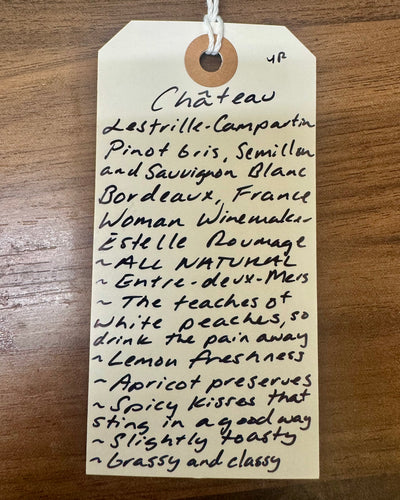 YR
Château
Lestrille-Campartin
Pinot Gris, Semillon
and Sauvignon Blanc
Bordeaux, France
Woman Winemaker
Estelle Roumage
~ ALL NATURAL
~ Entre-deux-Mers
~ The teaches of
white peaches, so
drink the pain away
~ Lemon freshness
~ Apricot preserves
~ Spicy kisses that
sting in a good way
~ Slightly toasty
~ Grassy and classy